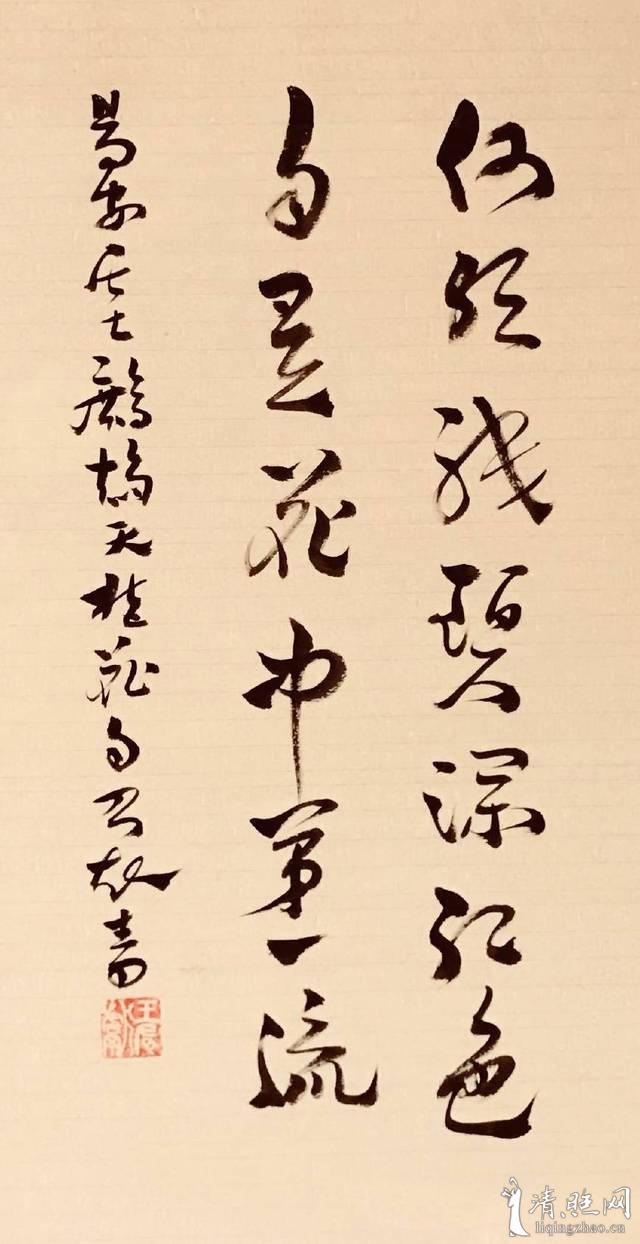 何须浅碧深红色
自是花中第一流
易安居士鹧鸪天桂花句
书
清照网
liqingzhao.cn